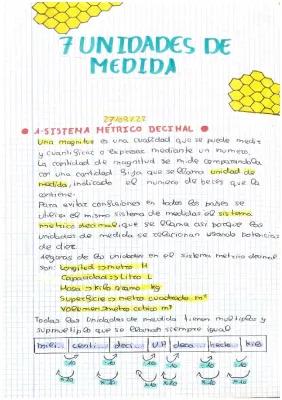 7 UNIDADES DE
MEDIDA
1-SISTEMA MÉTRICO DECIMAL
Una magnitud es una cualidad que se puede medir
y cuantificar o expresar mediante un numero.
La cantidad de magnitud se mide comparandola
con una cantidad fija que se llama unidad de
medida, indicado el numero de beces que la
contiene.
Para evitar confusiones en todos los paises se
utiliza el mismo sistema de medidas: el sistema
metrico decimal, que se llama asi porque las
unidades de medida se relacionan usando potencias
de diez.
Algunas de las unidades en el sistema metrico decimal
son: Longitud → metro M
Capacidad → Litro L
Masa → kilo gramo kg
Superficie → metro cuadrado m²
Volumen → metro cubico m³
Todas las unidades de medida tienen multiplos y
submultiplos que se llaman siempre igual
mili... centi... deci... U.P deca... hecto... kilo
:10 :10 :10 :10 :10 :10
x10 x10 x10 x10 x10 x10